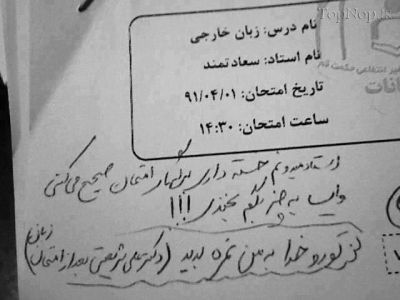 TopNop.ir
نام درس: زبان خارجی
نام استاد: سعادتمند
تاریخ امتحان: ۹۱/۰۴/۰۱
ساعت امتحان: ۱۴:۳۰
استاد میدونم خسته داری برگهای امتحان صحیح می‌کنی
وایسا یه چیز بگم بخندی !!!
تورو خدا به من نمره بدید (دکتر علی شریعتی بعد از امتحان زبان)